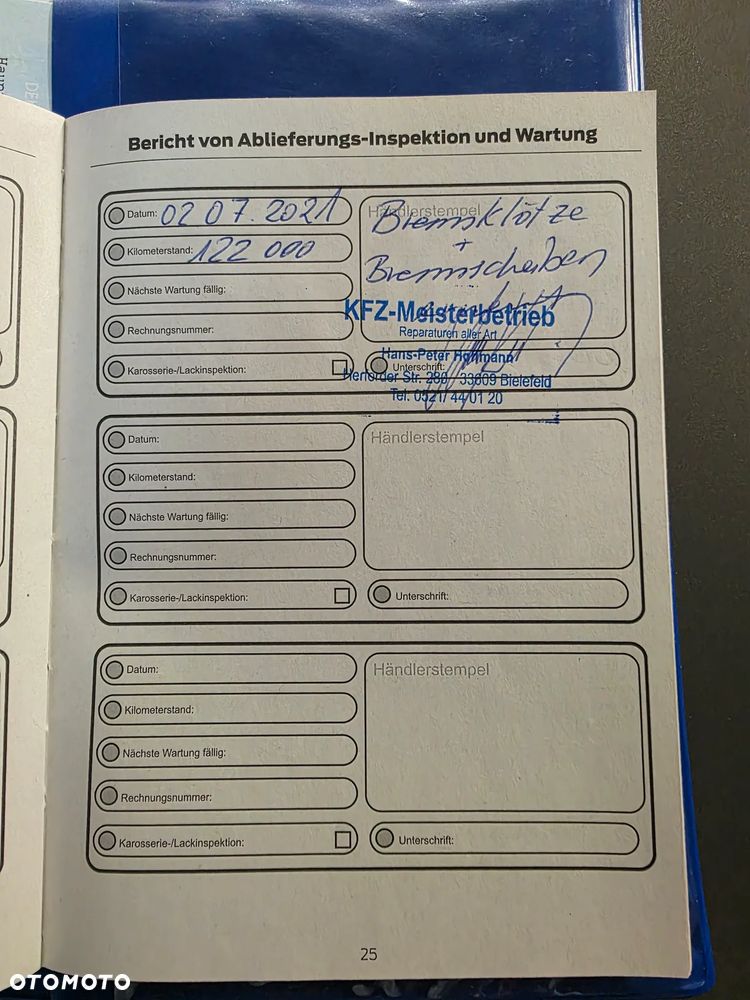 Bericht von Ablieferungs-Inspektion und Wartung
Datum: 02 07. 2021
Händlerstempel
Bremsklötze
+
Bremsscheiben
Kilometerstand: 122 000
Nächste Wartung fällig:
KFZ-Meisterbetrieb
Rechnungsnummer:
Reparaturen aller Art
Hans-Peter Hoffmann
Karosserie-/Lackinspektion:
Unterschrift:
Herforder Str. 33609 Bielefeld
Tel. 0521/ 44 01 20
Datum:
Händlerstempel
Kilometerstand:
Nächste Wartung fällig:
Rechnungsnummer:
Karosserie-/Lackinspektion:
Unterschrift:
Datum:
Händlerstempel
Kilometerstand:
Nächste Wartung fällig:
Rechnungsnummer:
Karosserie-/Lackinspektion:
Unterschrift:
25
OTOMOTO